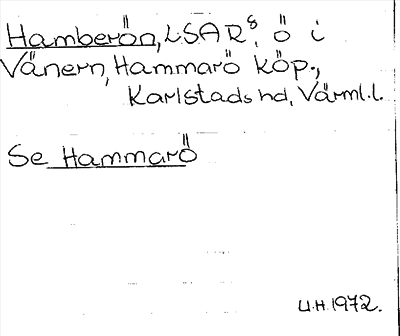 Hamberön, LSAR⁸, ö i
Vänern, Hammarö köp.,
Karlstads hd, Värml.l.
Se Hammarö
U.H. 1972.